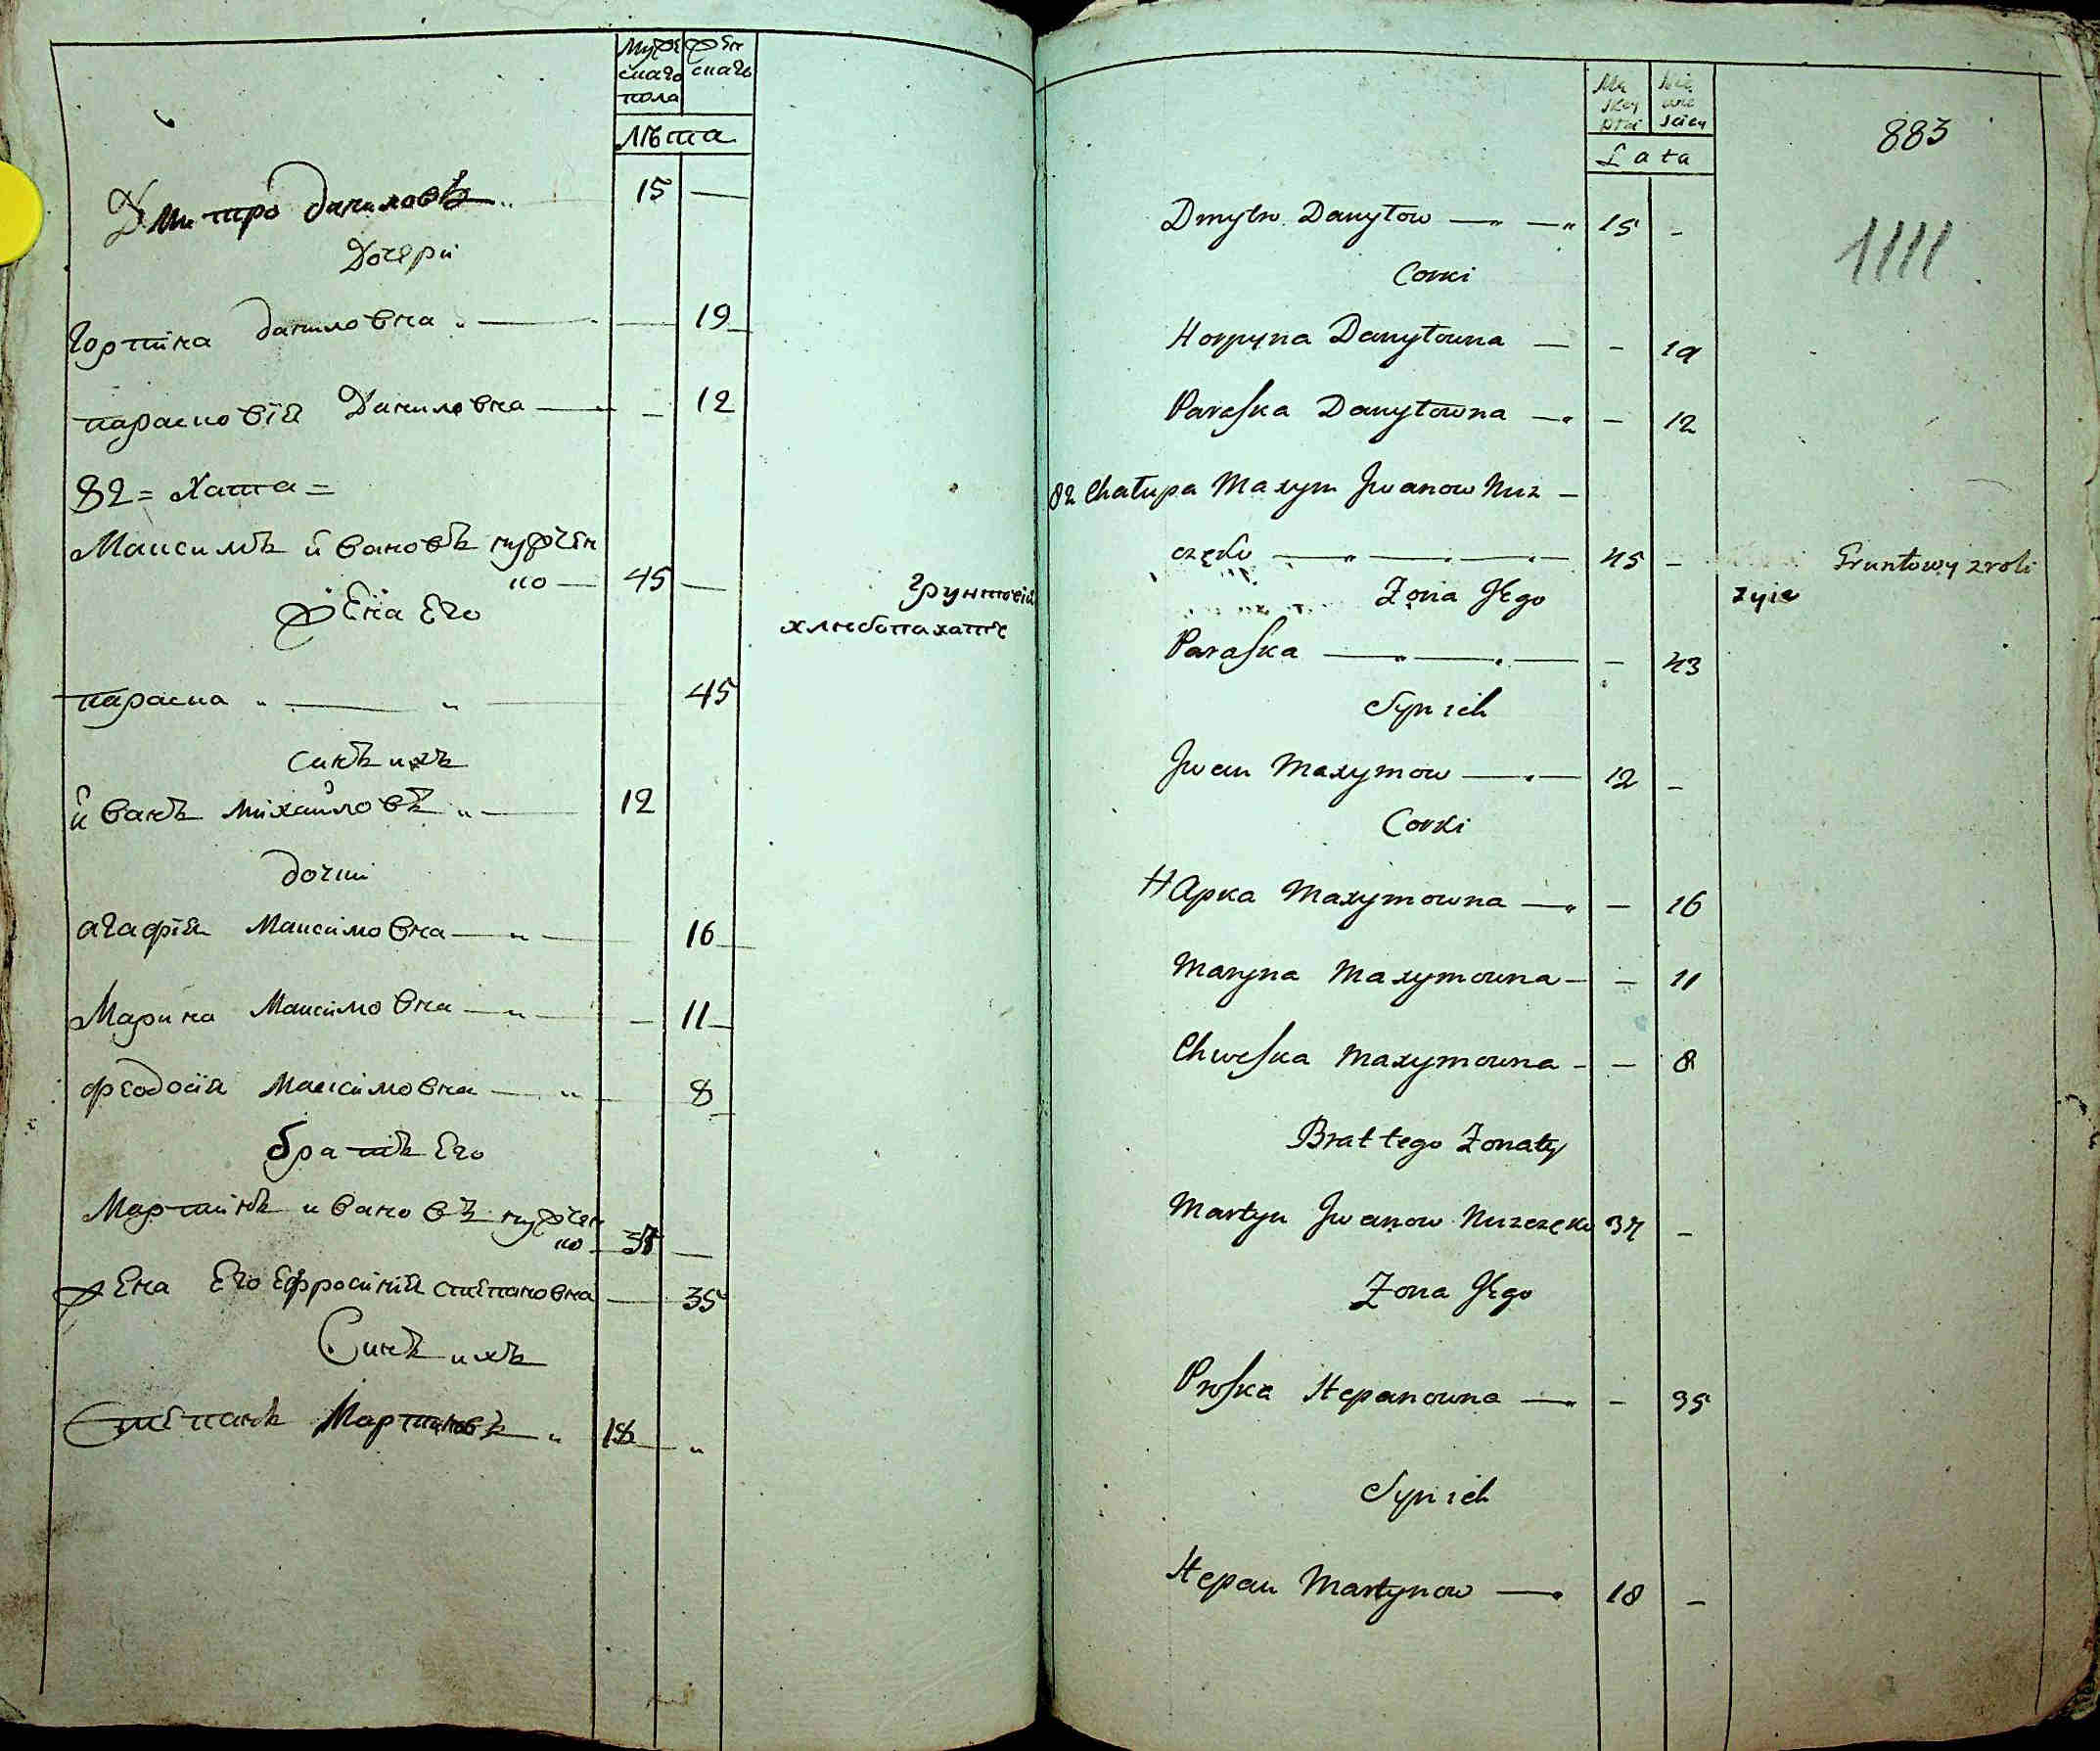 Мужескаго пола
Женскаго
Лѣта
Дмитро Даниловъ 15 —
Дочери
Горпина Даниловна — — 19
Парасковія Даниловна — — 12
82 = Хата =
Максимъ Ивановъ нужчен
ко — 45 —
Жена Его
Грунтовій
хлѣбопахате
Параска „ — „ — 45
Синъ ихъ
Иванъ Михайловъ „ — 12
дочки
Агафія Максимовна — „ — 16
Марина Максимовна — „ — — 11
Феодосія Максимовна — „ — 8
братъ Его
Мартинъ Ивановъ нужчен
ко — 37 —
Жена Его Ефросинія Степановна — 35
Синъ ихъ
Степанъ Мартиновъ „ 18 „
Męskey płci
Lata
883
1111
Dmytro Danyłow — „ — „ 15 -
Corki
Horpyna Danyłowna — - 19
Paraska Danyłowna — - 12
82 Chałupa Maxym Jwanow Nuz -
częko — „ — 45 -
Gruntowy z roli
zyie
Zona Jego
Paraska — „ — - 43
Syn ich
Jwan Maxymow — 12 -
Corki
HApka Maxymowna — - 16
Maryna Maxymowna - - 11
Chweska Maxymowna - - 8
Brat tego Zonaty
Martyn Jwanow Nuzczęko 37 -
Zona Jego
Proska Stepanowna — - 35
Syn ich
Stepan Martynow — 18 -